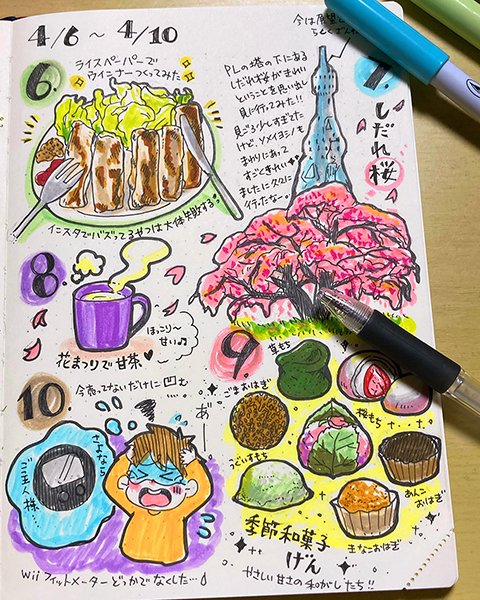 4/6 ～ 4/10
6.
ライスペーパーで
ウインナーつくってみた
インスタでバズってるやつは大体失敗する。
7.
しだれ桜
今は展望
PLの塔の下にある
しだれ桜がきれい
ということを思い出し
見に行ってみた!!
見ごろ少しすぎてた
けど、ソメイヨシノも
まわりにあって
すごくきれい
ました!久々に
行ったなー。
8
ほっこり〜
甘い♪
花まつりで甘茶♥
9
草もち
ごまおはぎ
桜もち
うぐいすもち
あんこ
おはぎ
きなこおはぎ
季節和菓子
げん
やさしい甘さの和がしたち!!
10
今売ってないだけに凹む
あ"ー
さよなら
ご主人様…
Wiiフィットメーターどっかでなくした…